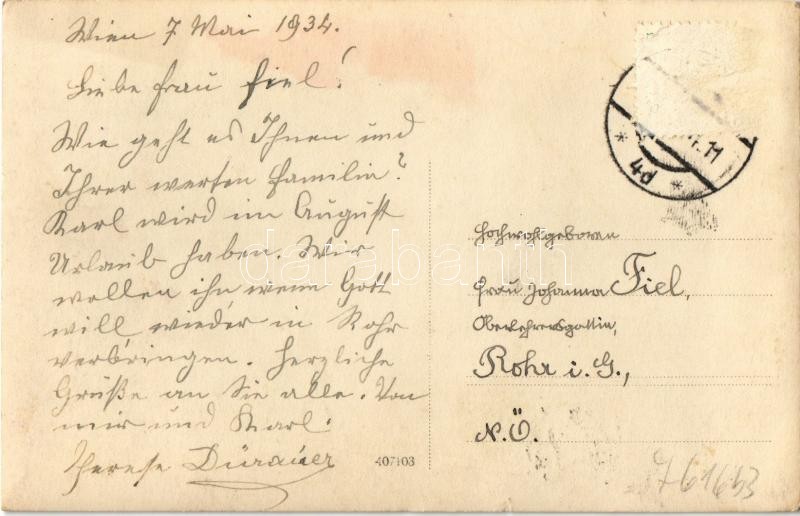 Wien 7 Mai 1934.
Liebe Frau Fiel!
Wie geht es Ihnen und
Ihrer werten Familie?
Karl wird im August
Urlaub haben. Wir
wollen ihn wenn Gott
will wieder in Rohr
verbringen. Herzliche
Grüße an Sie alle. Von
mir und Karl.
Therese Dürauer
407103
4d
11
Hochwohlgeboren
Frau Johanna Fiel,
Oberlehrersgattin,
Rohr i. G.,
N.Ö.
761653
databanth